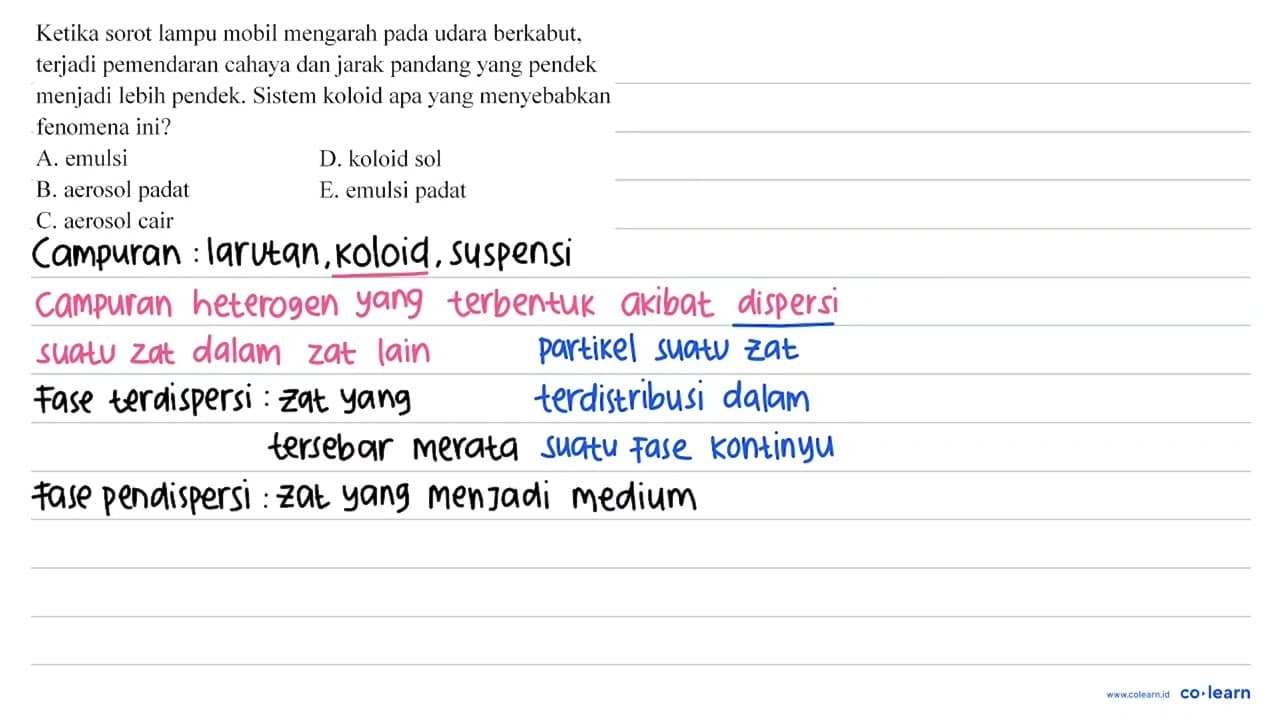 Ketika sorot lampu mobil mengarah pada udara berkabut,
terjadi pemendaran cahaya dan jarak pandang yang pendek
menjadi lebih pendek. Sistem koloid apa yang menyebabkan
fenomena ini?
A. emulsi
D. koloid sol
B. aerosol padat
E. emulsi padat
C. aerosol cair
Campuran : larutan, koloid, suspensi
Campuran heterogen yang terbentuk akibat dispersi
suatu zat dalam zat lain
partikel suatu zat
Fase terdispersi : zat yang
terdistribusi dalam
tersebar merata
suatu fase kontinyu
Fase pendispersi : zat yang menjadi medium
www.colearn.id co·learn